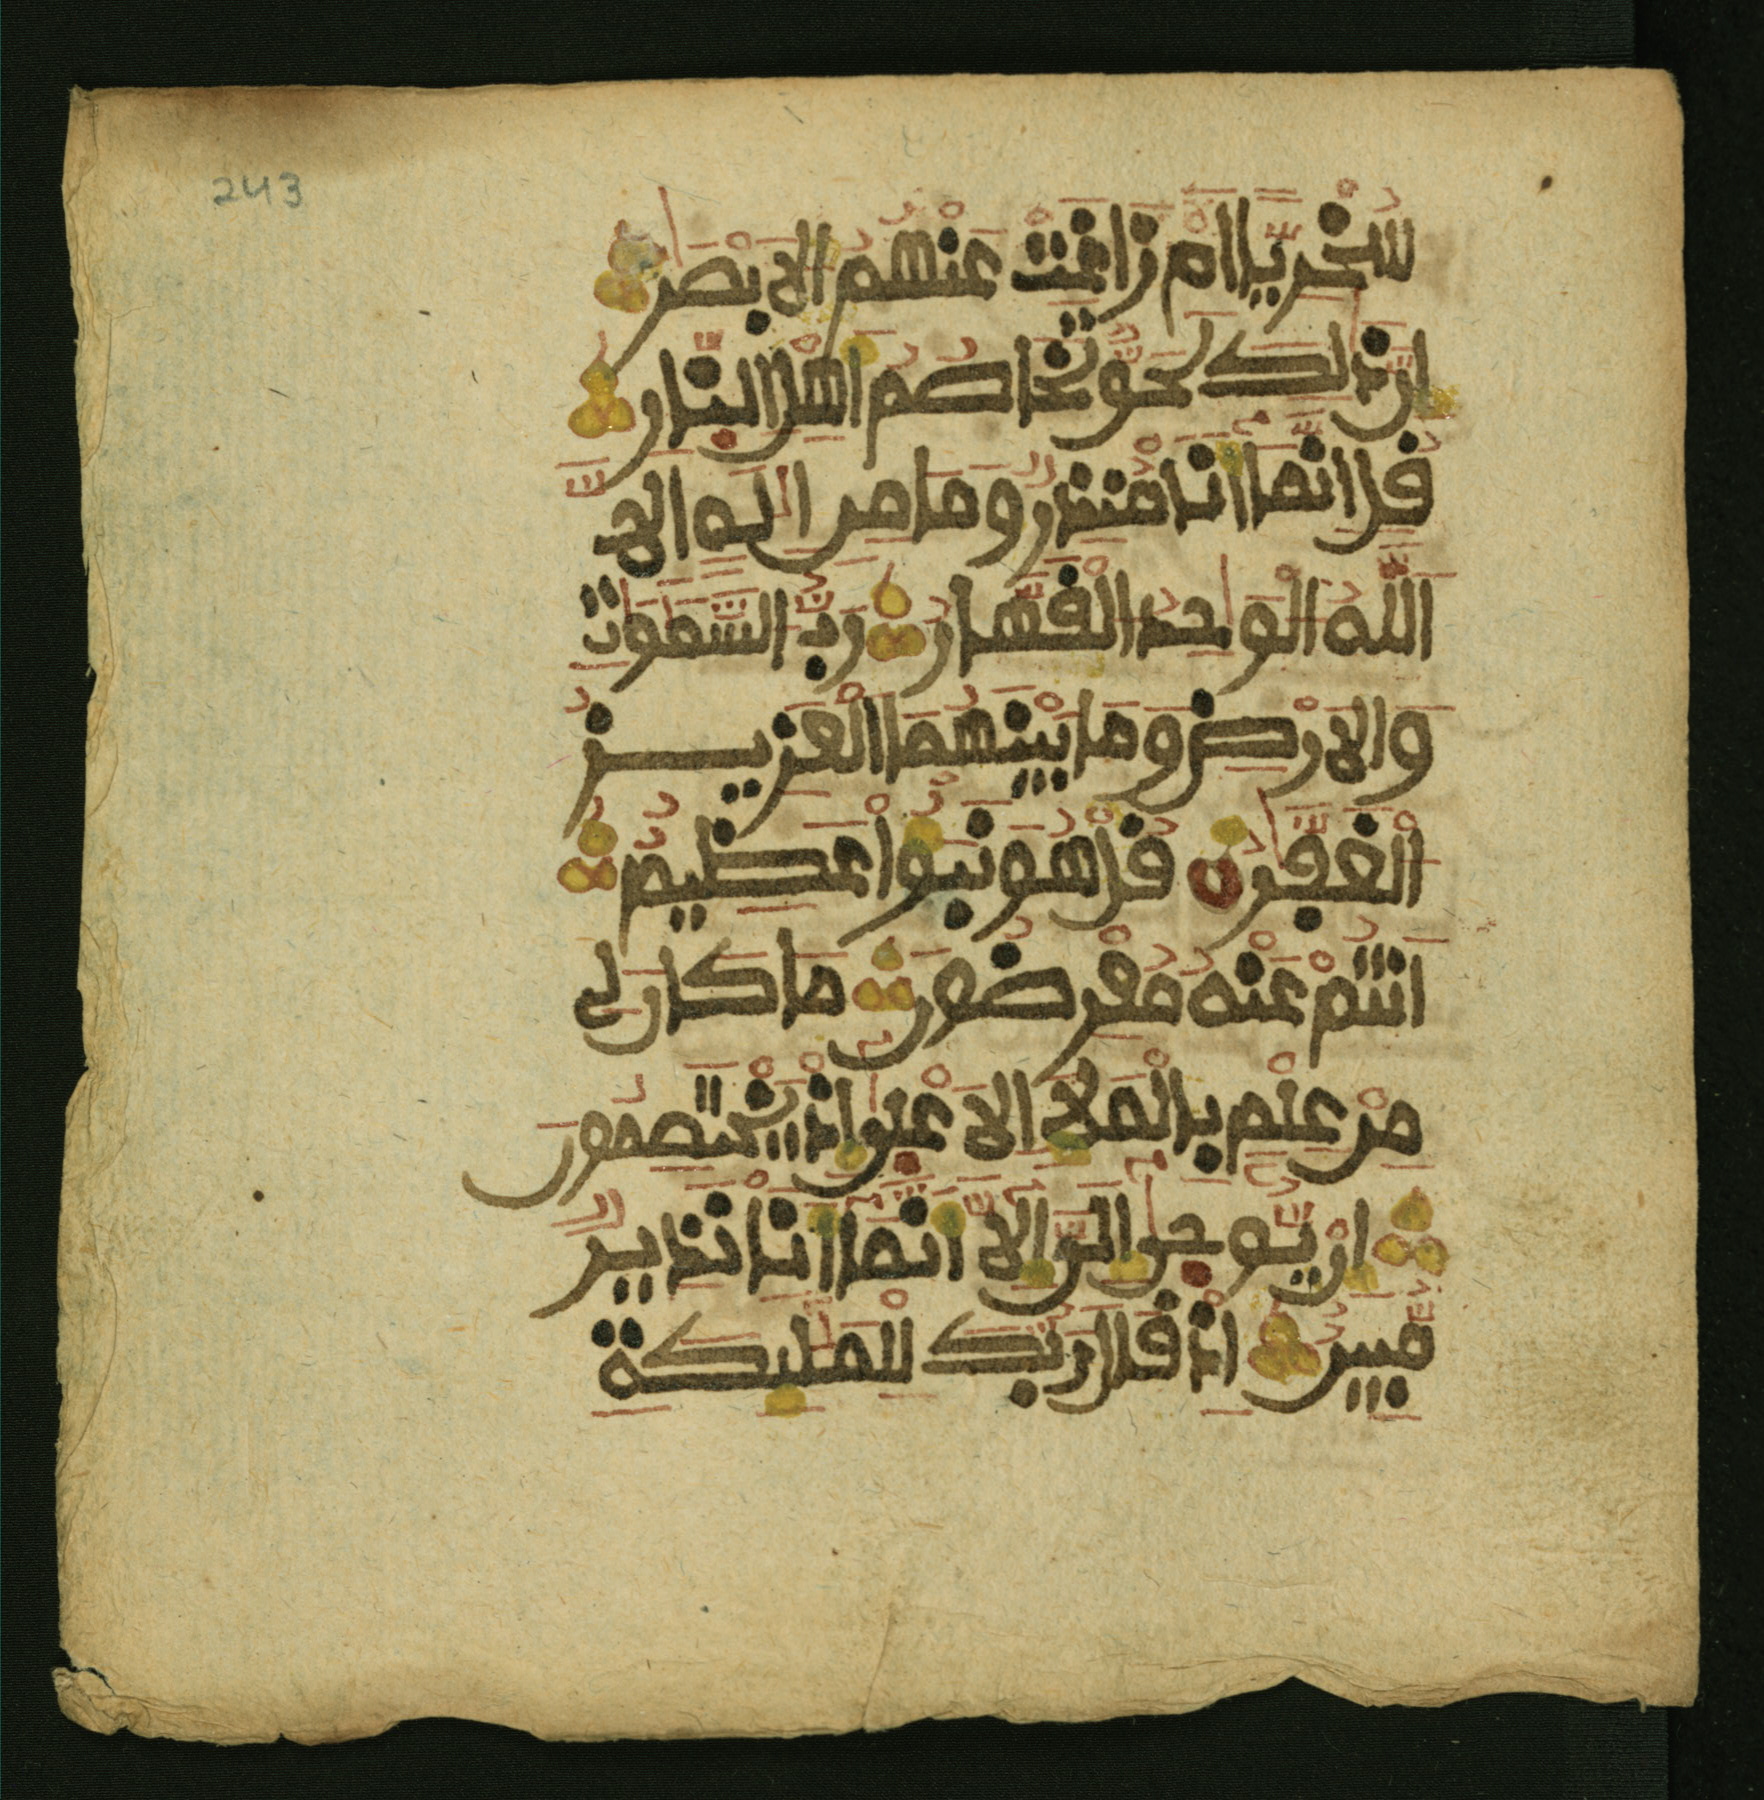 243
سُخْرِيًّا اَمْ زَاغَتْ عَنْهُمُ الَابْصَٰرُ
اِنَّ ذَٰلِكَ لَحَقٌّ تَخَاصُمُ اَهْلِ النّارِ
قُلِ انَّمَآ أَنَا مُنذِرٌ وَمَا مِنِ اِلَٰهٍ اِلَّا
اللَّهُ الْوَٰحِدُ الْقَهَّارُ رَبُّ السَّمَٰوَٰتِ
وَالَارْضِ وَمَا بَيْنَهُمَا الْعَزِيزُ
الْغَفَّٰرُ قُلْ هُوَ نَبَؤٌا عَظِيمٌ
اَنتُمْ عَنْهُ مُعْرِضُونَ مَا كَانَ لِي
مِنْ عِلْمٍ بِالْمَلَإِ الَاعْلَىٰٓ إِذْ يَخْتَصِمُونَ
اِنْ يُّوحَىٰٓ إِلَيَّ إِلَّآ أَنَّمَآ أَنَا نَذِيرٌ
مُّبِينٌ اِذْ قَالَ رَبُّكَ لِلْمَلَٰٓئِكَةِ